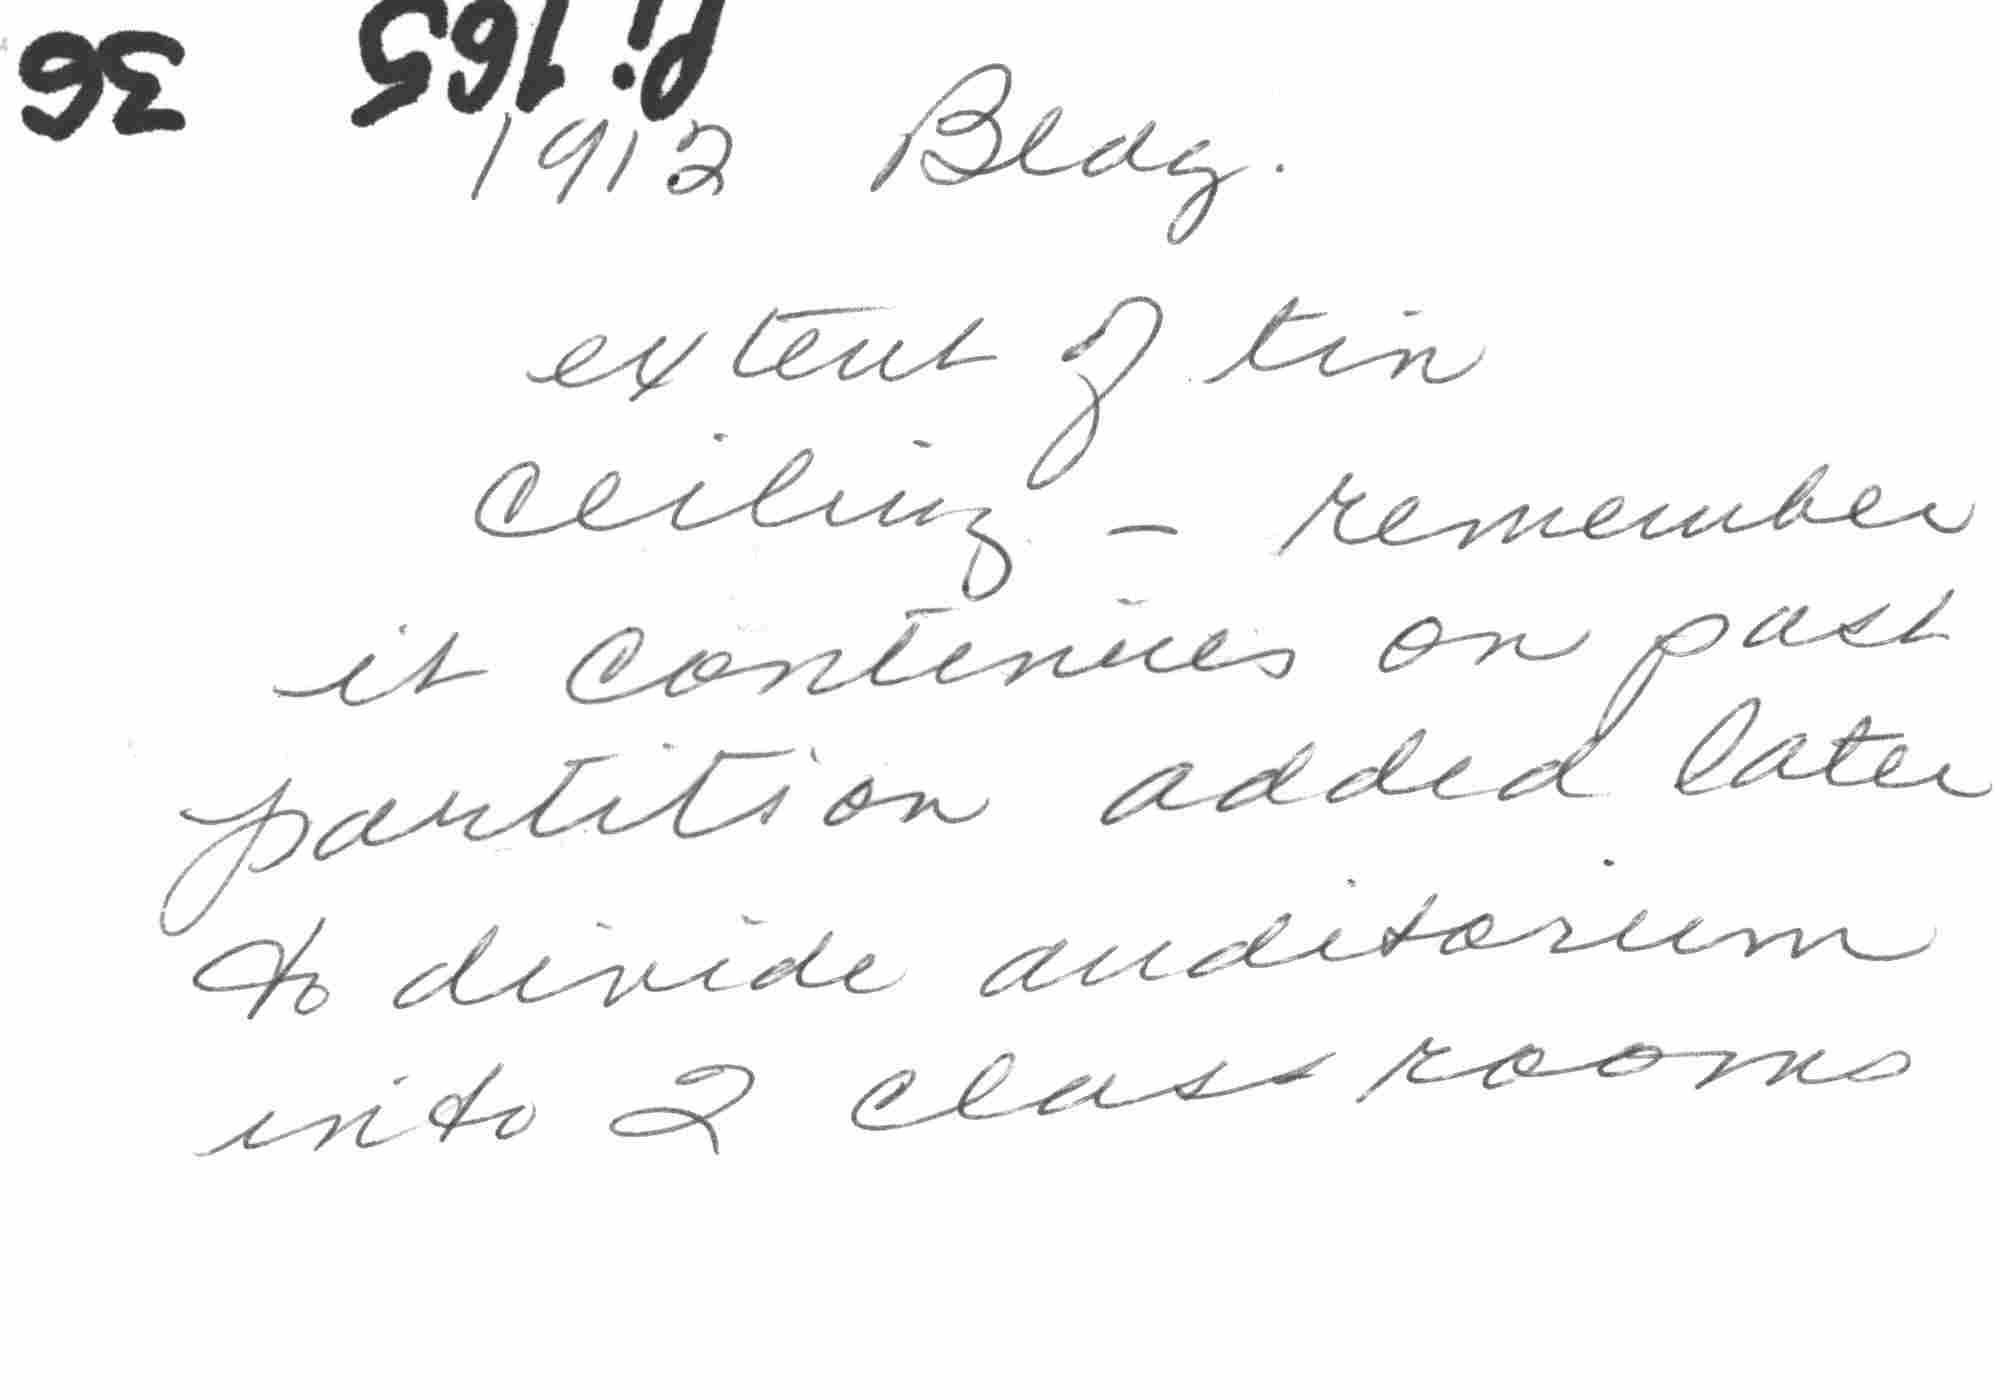 P. 165 36
1912 Bldg.
extent of tin
ceiling – remember
it continues on past
partition added later
to divide auditorium
into 2 class rooms